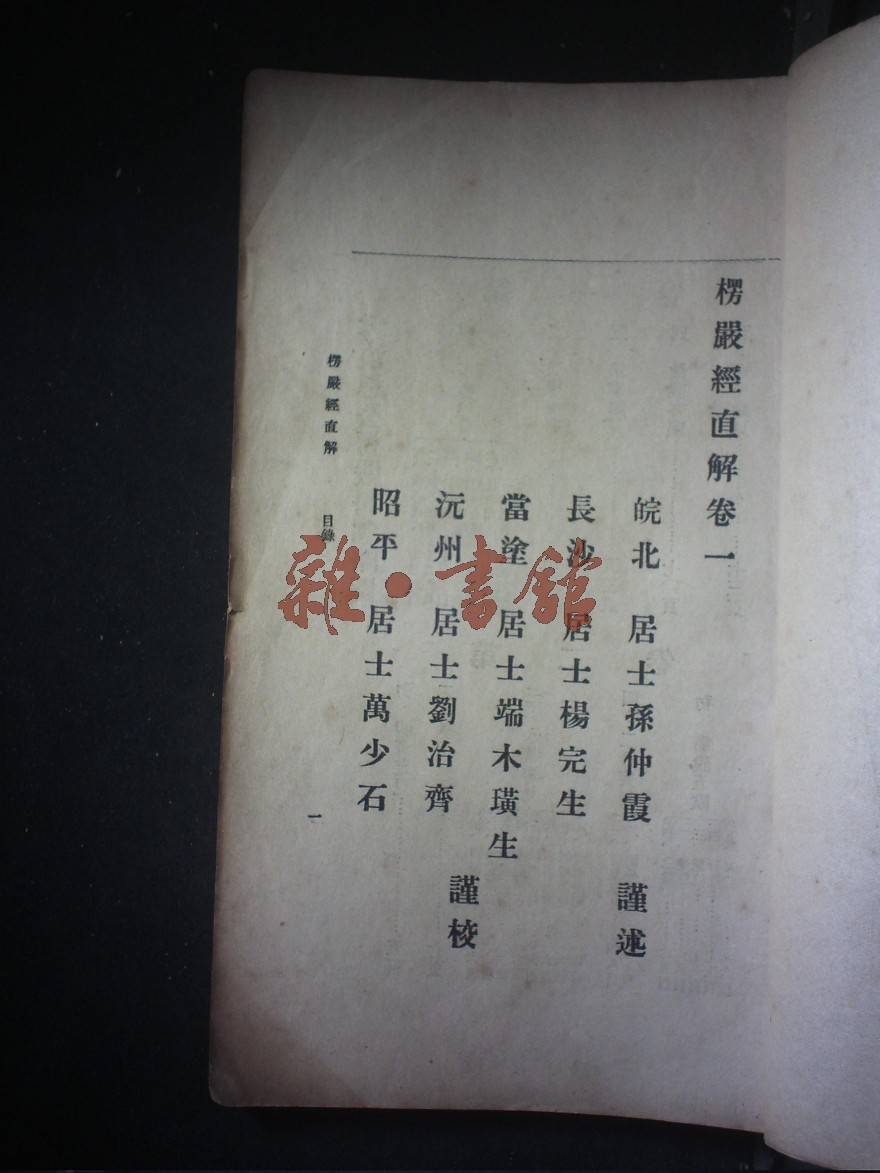 楞嚴經直解卷一
皖北 居士孫仲霞 謹述
長沙 居士楊完生
當塗 居士端木璜生
謹校
沅州 居士劉治齊
昭平 居士萬少石
楞嚴經直解 目錄 一
雜·書館